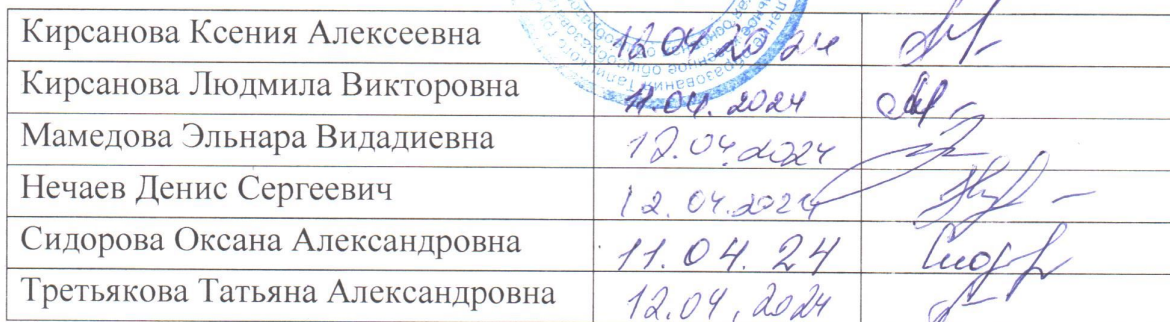 Кирсанова Ксения Алексеевна 12.04.2024
Кирсанова Людмила Викторовна 11.04.2024
Мамедова Эльнара Видадиевна 12.04.2024
Нечаев Денис Сергеевич 12.04.2024
Сидорова Оксана Александровна 11.04.24
Третьякова Татьяна Александровна 12.04.2024